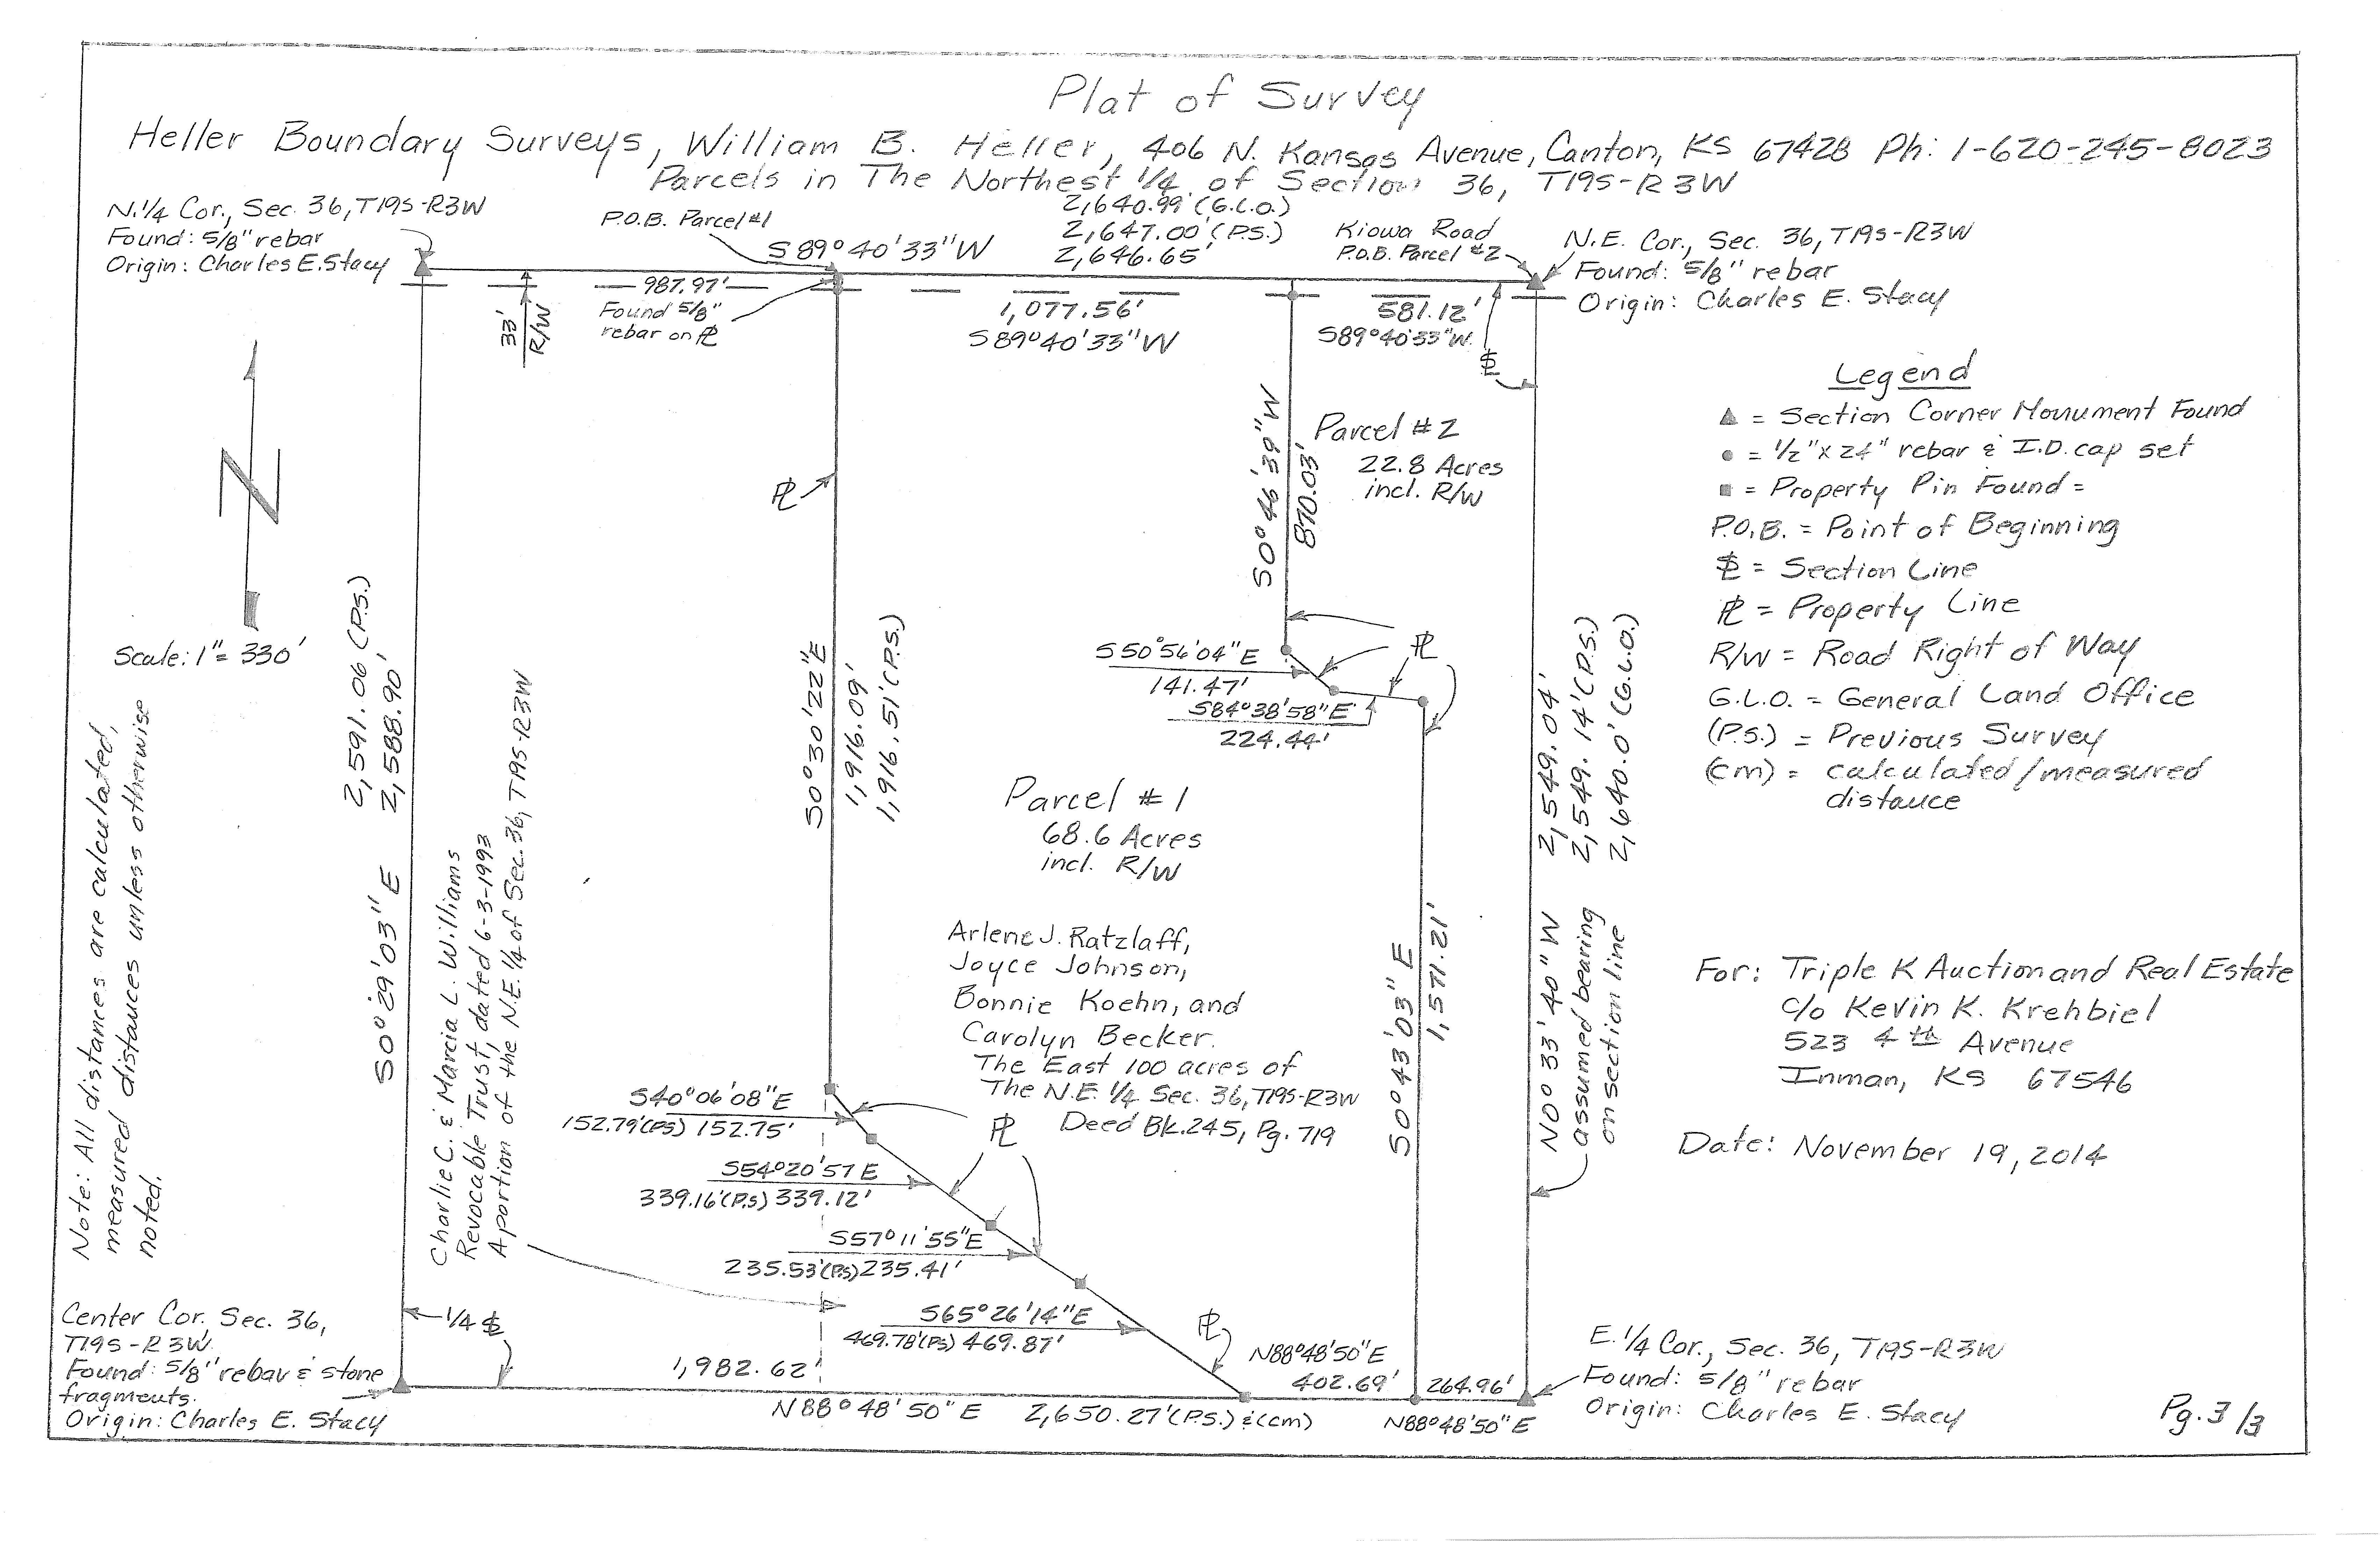 Plat of Survey
Heller Boundary Surveys, William B. Heller, 406 N. Kansas Avenue, Canton, KS 67428 Ph: 1-620-245-8023
Parcels in The Northest 1/4 of Section 36, T19S-R3W
N.1/4 Cor., Sec. 36, T19S-R3W
Found: 5/8" rebar
Origin: Charles E. Stacy
P.O.B. Parcel #1
S89°40'33"W
2,640.99' (G.L.O.)
2,647.00' (P.S.)
2,646.65'
Kiowa Road
P.O.B. Parcel #2
N.E. Cor., Sec. 36, T19S-R3W
Found: 5/8" rebar
Origin: Charles E. Stacy
987.97'
Found 5/8"
rebar on PL
33'
R/W
1,077.56'
S89°40'33"W
581.12'
S89°40'33"W
SL
Legend
▲ = Section Corner Monument Found
● = 1/2" x 24" rebar & I.D. cap set
■ = Property Pin Found =
P.O.B. = Point of Beginning
SL = Section Line
PL = Property Line
R/W = Road Right of Way
G.L.O. = General Land Office
(P.S.) = Previous Survey
(cm) = calculated/measured
distance
N
Scale: 1" = 330'
Note: All distances are calculated,
measured distances unless otherwise
noted.
2,591.06 (P.S.)
S0°29'03"E 2,588.90'
Charlie C. & Marcia L. Williams
Revocable Trust, dated 6-3-1993
A portion of the N.E. 1/4 of Sec. 36, T19S-R3W
PL
S0°30'22"E
1,916.09'
1,916.51' (P.S.)
S0°46'39"W
870.03'
Parcel #2
22.8 Acres
incl. R/W
PL
S50°56'04"E
141.47'
S84°38'58"E
224.44'
Parcel #1
68.6 Acres
incl. R/W
Arlene J. Ratzlaff,
Joyce Johnson,
Bonnie Koehn, and
Carolyn Becker.
The East 100 acres of
The N.E. 1/4 Sec. 36, T19S-R3W
Deed Bk. 245, Pg. 719
S0°43'03"E
1,571.21'
N0°33'40"W 2,549.04'
assumed bearing 2,549.14' (P.S.)
on section line 2,640.0' (G.L.O.)
For: Triple K Auction and Real Estate
c/o Kevin K. Krehbiel
523 4th Avenue
Inman, KS 67546
Date: November 19, 2014
S40°06'08"E
152.79' (P.S) 152.75'
PL
S54°20'57E
339.16' (P.S) 339.12'
S57°11'55"E
235.53' (P.S) 235.41'
S65°26'14"E
469.78' (P.S) 469.87'
PL
Center Cor. Sec. 36,
T19S-R3W.
Found: 5/8" rebar & stone
fragments.
Origin: Charles E. Stacy
1/4 SL
1,982.62'
N88°48'50"E 2,650.27' (P.S.) & (cm)
N88°48'50"E
402.69'
264.96'
N88°48'50"E
E. 1/4 Cor., Sec. 36, T19S-R3W
Found: 5/8" rebar
Origin: Charles E. Stacy
Pg. 3/3